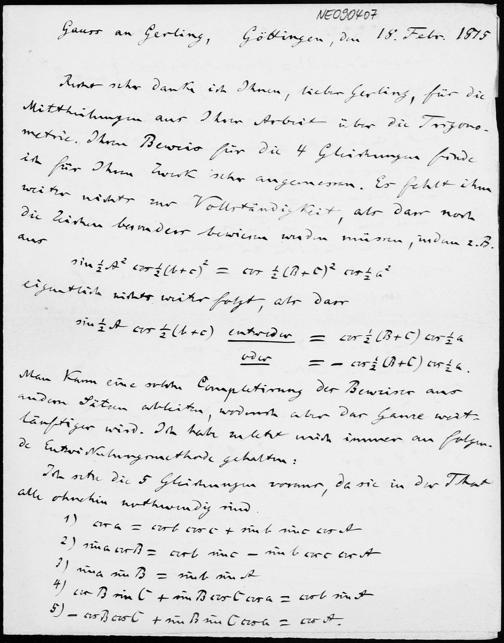 NE090407
Gauss an Gerling, Göttingen, den 18. Febr. 1815
Recht sehr danke ich Ihnen, lieber Gerling, für die
Mittheilungen aus Ihrer Arbeit über die Trigono-
metrie. Ihren Beweis für die 4 Gleichungen finde
ich für Ihren Zweck sehr angemessen. Es fehlt ihm
weiter nichts zur Vollständigkeit, als dass noch
die Zeichen besonders bewiesen werden müssen, indem z.B.
aus
sin½A² cos½(b+c)² = cos½(B+C)² cos½a²
eigentlich nichts weiter folgt, als dass
sin½A cos½(b+c) entweder = cos½(B+C) cos½a
oder = - cos½(B+C) cos½a.
Man kann eine solche Completirung des Beweises aus
andern Sätzen ableiten, wodurch aber das Ganze weit-
läuftiger wird. Ich habe zuletzt mich immer an folgen-
de Entwickelungsmethode gehalten:
Ich setze die 5 Gleichungen voraus, da sie in der That
alle ohnehin nothwendig sind.
1) cos a = cos b cos c + sin b sin c cos A
2) sin a cos B = cos b sin c - sin b cos c cos A
3) sin a sin B = sin b sin A
4) cos B sin C + sin B cos C cos a = cos b sin A
5) - cos B cos C + sin B sin C cos a = cos A.